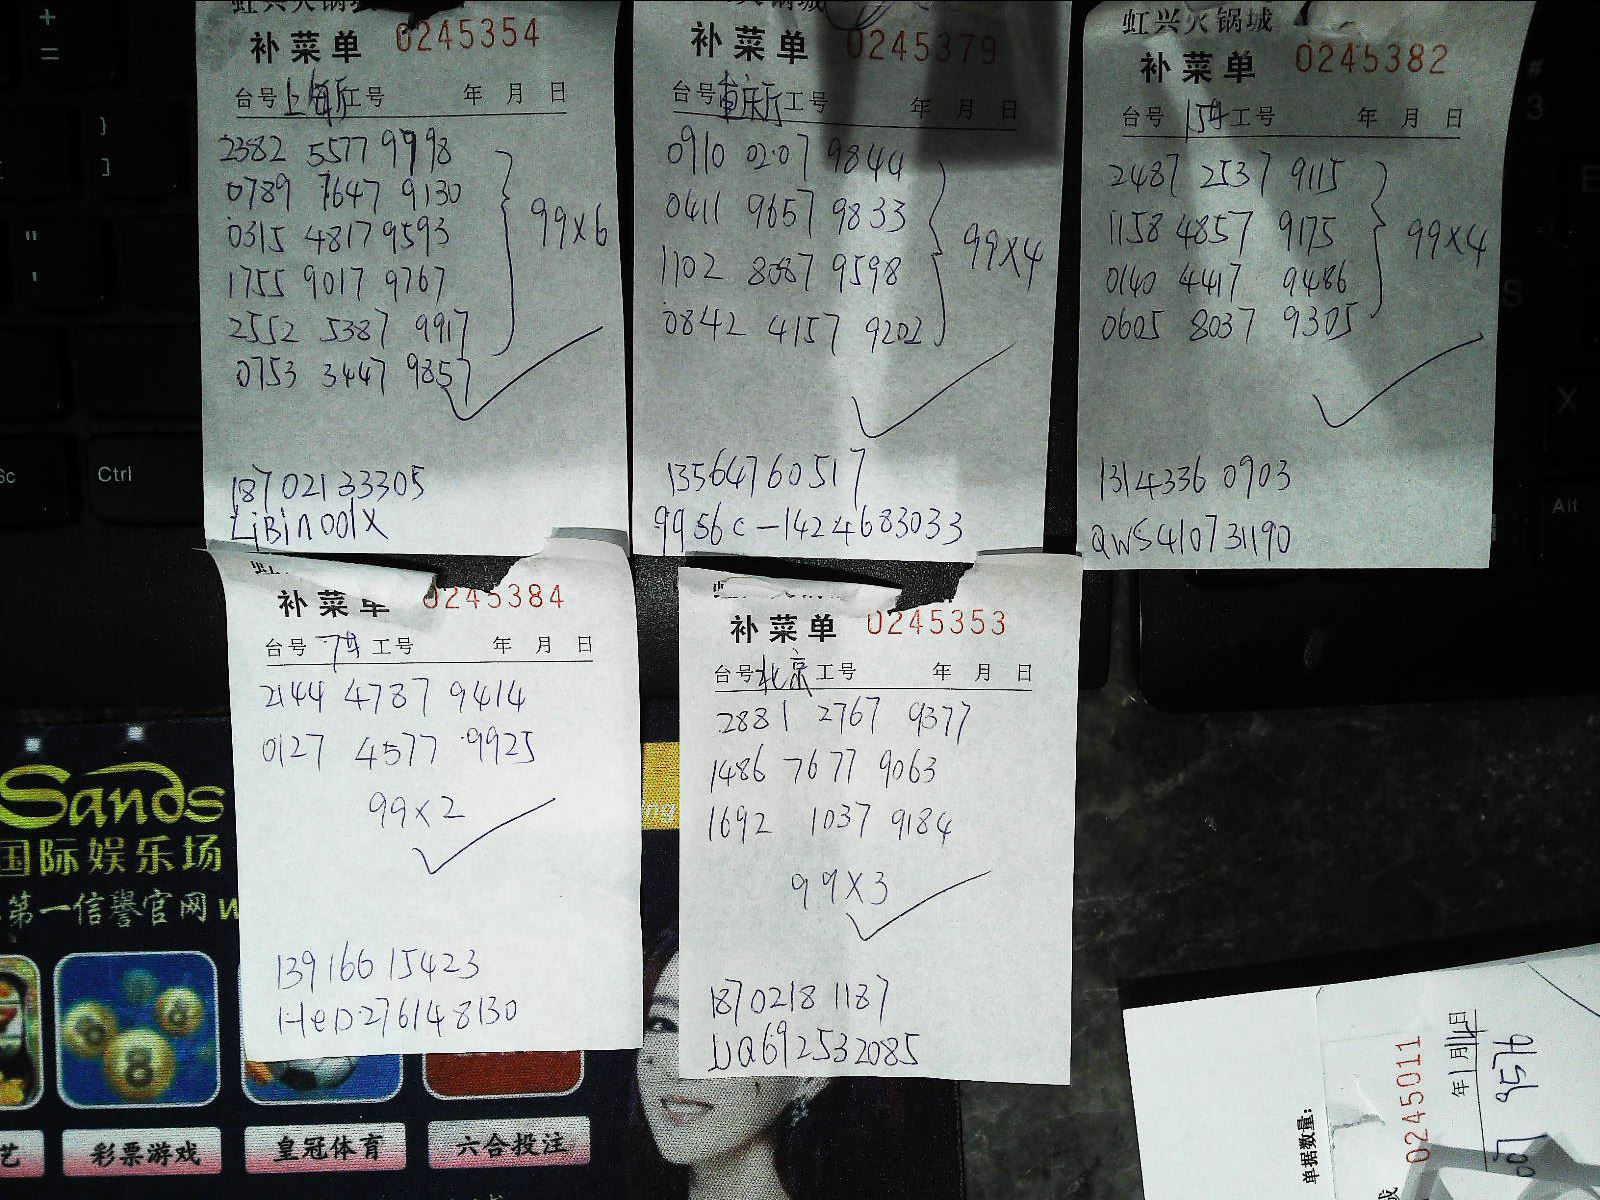 补菜单 0245354
台号 上海厅 工号 年 月 日
2382 5577 9998
0789 7647 9130
0315 4817 9593
1755 9017 9767
2552 5387 9917
0753 3447 9857
99×6
18702133305
LiBin001X
补菜单 0245379
台号 重庆厅 工号 年 月 日
0910 0207 9844
0411 9657 9833
1102 8087 9598
0842 4157 9202
99×4
13564760517
9956c-1424683033
虹兴火锅城
补菜单 0245382
台号 15号 工号 年 月 日
2487 2537 9115
1158 4857 9175
0140 4417 9486
0605 8037 9305
99×4
13143360903
QWS410731190
补菜单 0245384
台号 7号 工号 年 月 日
2144 4787 9414
0127 4577 9925
99×2
13916615423
HeD276148130
补菜单 0245353
台号 北京 工号 年 月 日
2881 2767 9377
1486 7677 9063
1692 1037 9184
99×3
18702181187
UQ692532085
Sands
国际娱乐场
第一信誉官网 w
艺
彩票游戏
皇冠体育
六合投注
单据数量:
0245011
+
=
}
]
"
'
Ctrl
#
3
E
S
X
Alt